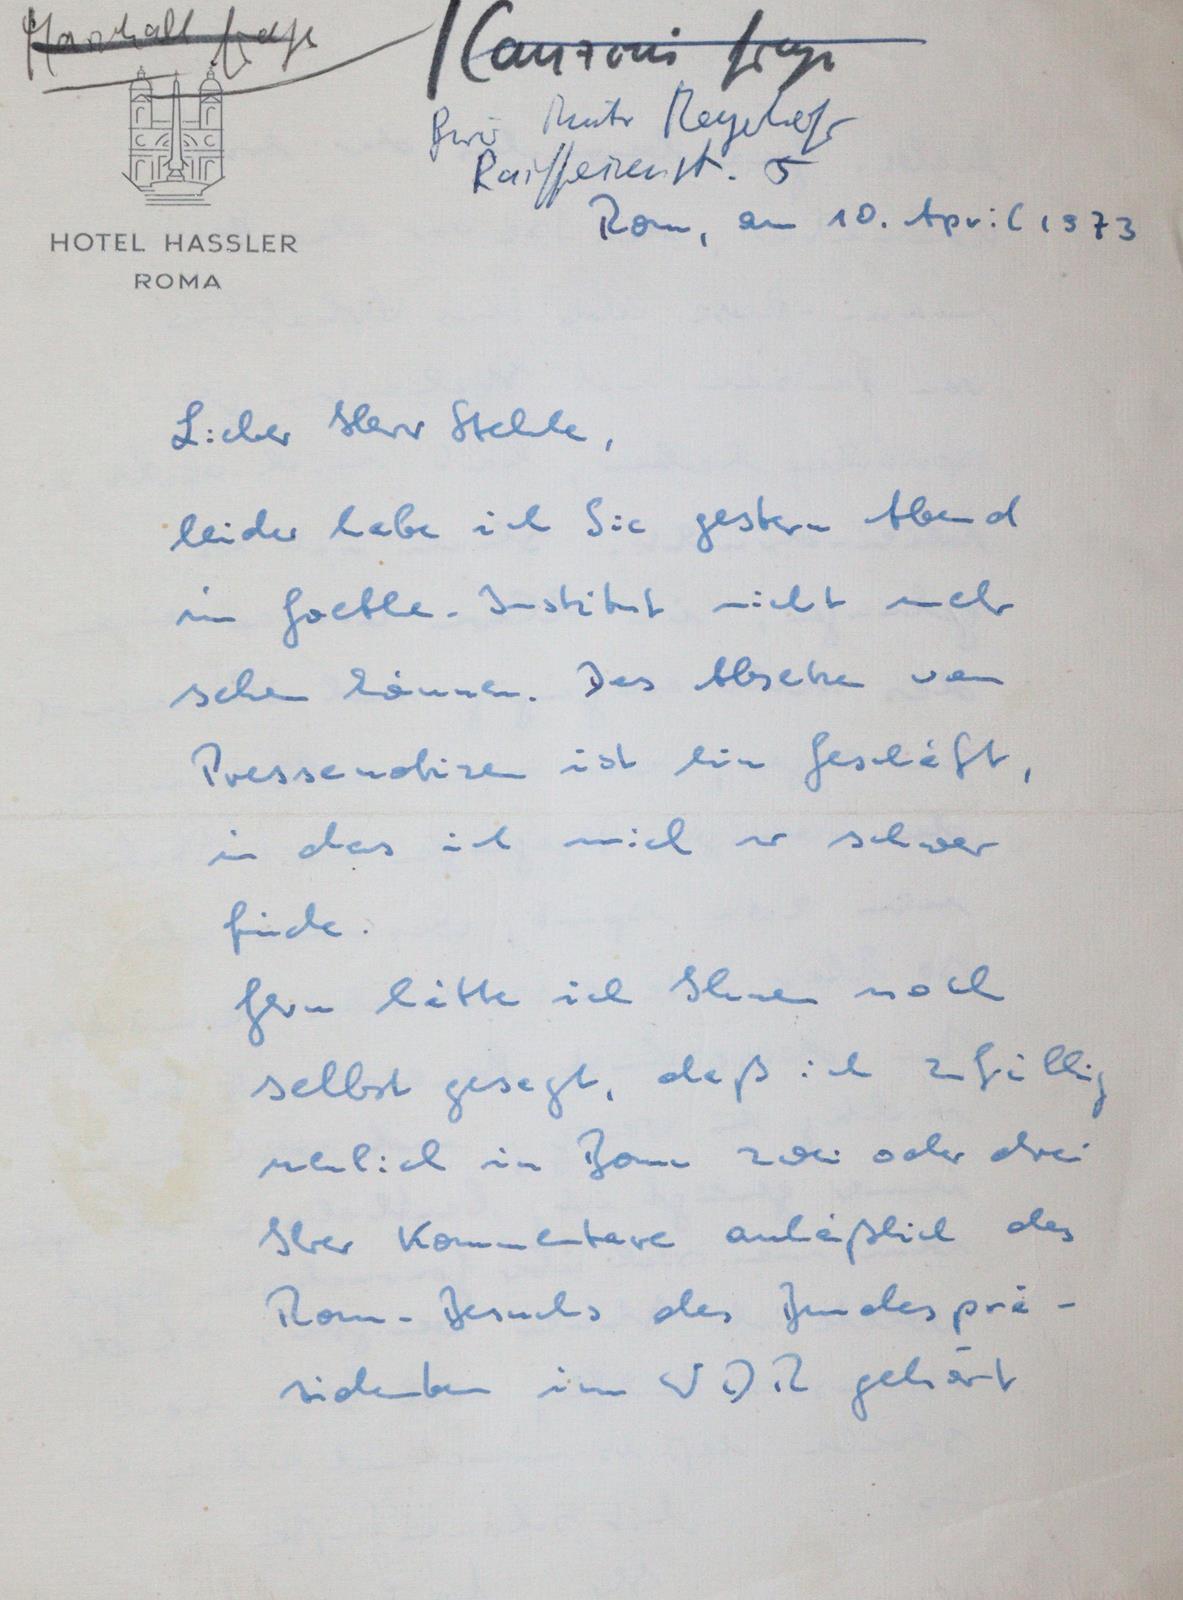 Marshall
Manzoni
Büro
Raiffeisenst. 5
Rom, am 10. April 1973
HOTEL HASSLER
ROMA
Lieber Herr Stehle,
leider habe ich Sie gestern Abend
im Goethe-Institut nicht mehr
sehen können. Das Absetzen von
Pressenotizen ist ein Geschäft,
in das ich mich nur schwer
finde.
Gern hätte ich Ihnen noch
selbst gesagt, daß ich zufällig
neulich in Bonn zwei oder drei
Ihrer Kommentare anläßlich des
Rom-Besuchs des Bundesprä-
sidenten im WDR gehört